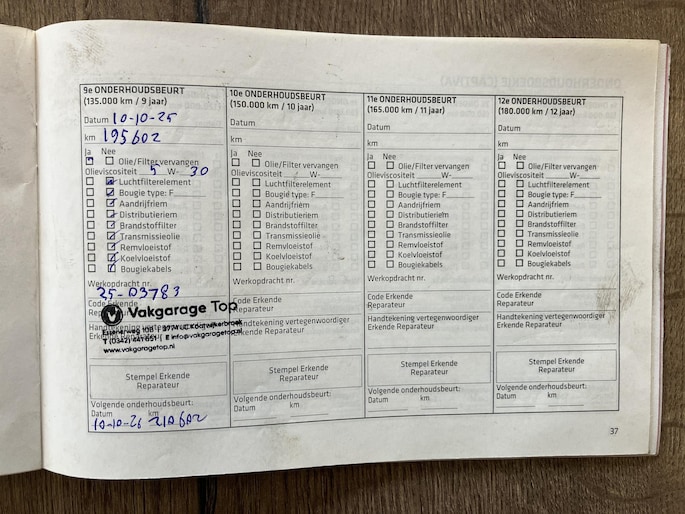 9e ONDERHOUDSBEURT
(135.000 km / 9 jaar)
Datum 10-10-25
km 195602
Ja Nee
Olie/Filter vervangen
Olieviscositeit 5 W- 30
Luchtfilterelement
Bougie type: F
Aandrijfriem
Distributieriem
Brandstoffilter
Transmissieolie
Remvloeistof
Koelvloeistof
Bougiekabels
Werkopdracht nr.
25-03783
Code Erkende
Vakgarage Top
Handtekening vertegenwoordiger
T (0342) 441651 | E info@vakgaragetop.nl
www.vakgaragetop.nl
Stempel Erkende
Reparateur
Volgende onderhoudsbeurt:
Datum km
10-10-26 210602
10e ONDERHOUDSBEURT
(150.000 km / 10 jaar)
Datum
km
Ja Nee
Olie/Filter vervangen
Olieviscositeit W-
Luchtfilterelement
Bougie type: F
Aandrijfriem
Distributieriem
Brandstoffilter
Transmissieolie
Remvloeistof
Koelvloeistof
Bougiekabels
Werkopdracht nr.
Code Erkende
Reparateur
Handtekening vertegenwoordiger
Erkende Reparateur
Stempel Erkende
Reparateur
Volgende onderhoudsbeurt:
Datum km
11e ONDERHOUDSBEURT
(165.000 km / 11 jaar)
Datum
km
Ja Nee
Olie/Filter vervangen
Olieviscositeit W-
Luchtfilterelement
Bougie type: F
Aandrijfriem
Distributieriem
Brandstoffilter
Transmissieolie
Remvloeistof
Koelvloeistof
Bougiekabels
Werkopdracht nr.
Code Erkende
Reparateur
Handtekening vertegenwoordiger
Erkende Reparateur
Stempel Erkende
Reparateur
Volgende onderhoudsbeurt:
Datum km
12e ONDERHOUDSBEURT
(180.000 km / 12 jaar)
Datum
km
Ja Nee
Olie/Filter vervangen
Olieviscositeit W-
Luchtfilterelement
Bougie type: F
Aandrijfriem
Distributieriem
Brandstoffilter
Transmissieolie
Remvloeistof
Koelvloeistof
Bougiekabels
Werkopdracht nr.
Code Erkende
Reparateur
Handtekening vertegenwoordiger
Erkende Reparateur
Stempel Erkende
Reparateur
Volgende onderhoudsbeurt:
Datum km
37